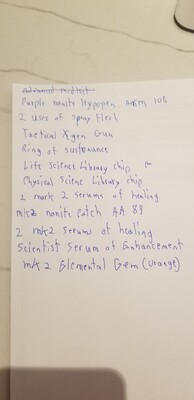 Advanced medkit
Purple nanite Hypopen 106
2 uses of Spray Flesh
Tactical Xygen Gun
Ring of sustenance
Life Science Library chip
Physical Scienc Library chip
2 mark 2 serums of healing
mk2 nanite Patch AA 89
2 mk2 serums of healing
Scientist Serum of Enhancement
mk 2 Elemental Gem (orange)